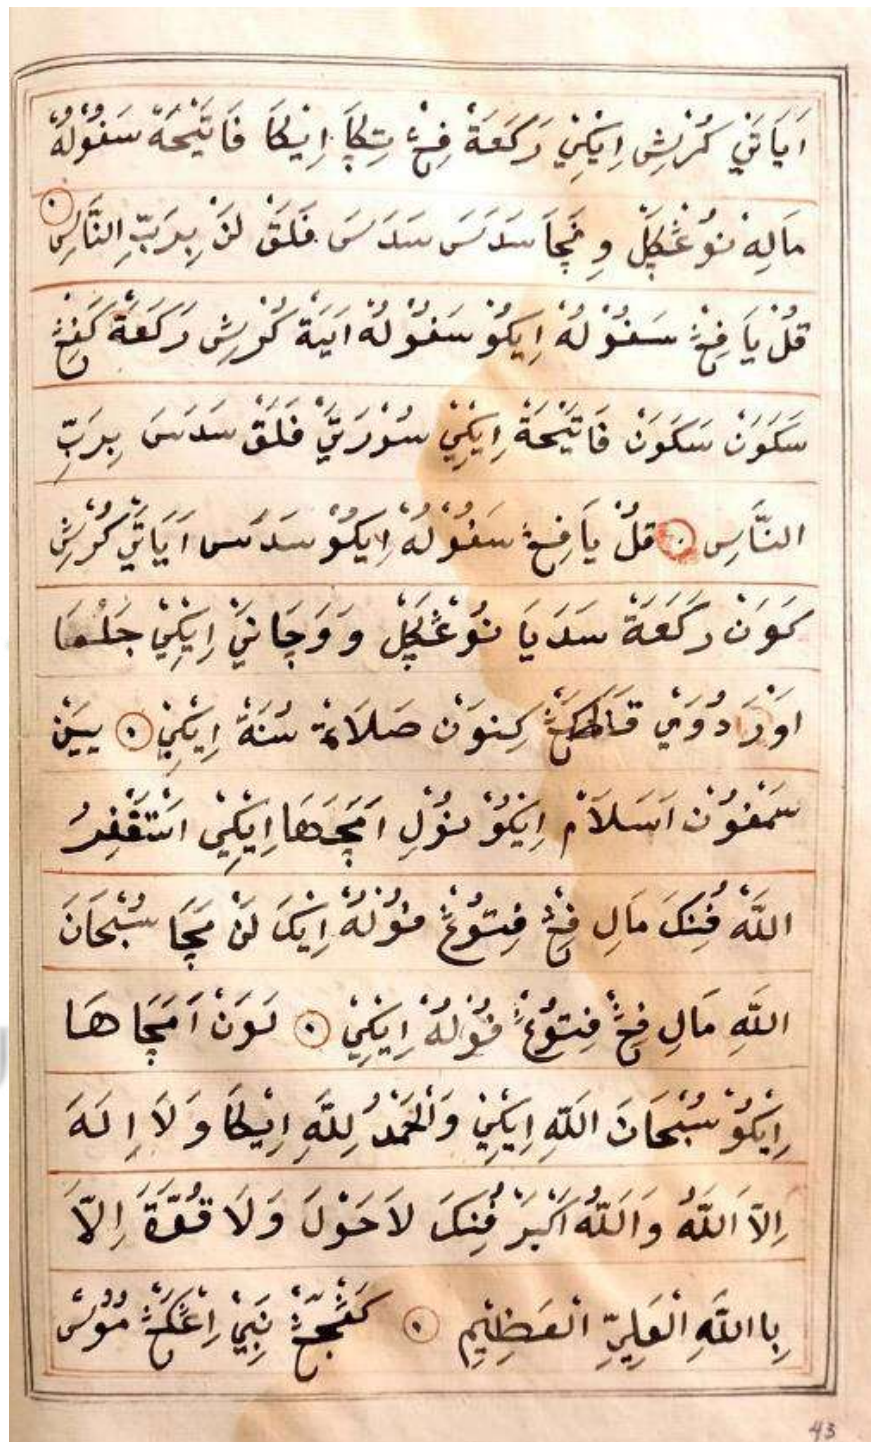 اَيَاتَيْ كُرْشِ اِيْكِيْ رَكَعَةْ فِڠْ تِكَا اِيْكَا فَاتَيْحَةْ سَڤُوْلُهْ
مَالِهْ نُوْڠْكَلْ وِنَچَا سَدَسَ سَدَسَ فَلَقْ لَنْ بِرَبِّ النَّاسِ
قُلْ يَا فِڠْ سَڤُوْلُهْ اِيْكُوْ سَڤُوْلُهْ اَيَةْ كُرْشِ رَكَعَةْ كَڤِڠْ
سَكَوَنْ سَكَوَنْ فَاتَيْحَةْ اِيْكِيْ سُوْرَتَيْ فَلَقْ سَدَسَ بِرَبِّ
النَّاسِ قُلْ يَا فِڠْ سَڤُوْلُهْ اِيْكُوْ سَدَسَ اَيَاتَيْ كُرْشِ
كَوَنْ رَكَعَةْ سَدَيَا نُوْڠْكَلْ وَوَچَانَيْ اِيْكِيْ جَلْمَا
اَوْرَ دُوَيْ قَاطَكَڠْ كِنَوَنْ صَلَاةْ سُنَةْ اِيْكِيْ يَيَنْ
سَمْڤُوْنْ اَسَلَامْ اِيْكُوْ نُوْلِ اَمَچَهَا اِيْكِيْ اَسْتَقْفِرُ
اللَّهْ ڤُنِكَ مَالِ فِڠْ فِتُوْڠْ ڤُوْلُهْ اِيْكَ لَنْ مَچَا سُبْحَانَ
اللَّهِ مَالِ فِڠْ فِتُوْڠْ ڤُوْلُهْ اِيْكِيْ لَوَنْ اَمَچَا هَا
اِيْكُوْ سُبْحَانَ اللَّهِ اِيْكِيْ وَالْحَمْدُ لِلَّهِ اِيْكَا وَلَا اِلَهَ
اِلَّا اللَّهُ وَاللَّهُ اَكْبَرْ ڤُنِكَ لَاحَوْلَ وَلَا قُوَّةَ اِلَّا
بِااللَّهِ الْعَلِيِّ الْعَظِيْمِ كَڠْجَڠْ نَبِيْ اِڠْكَڠْ مُوْسَ
43